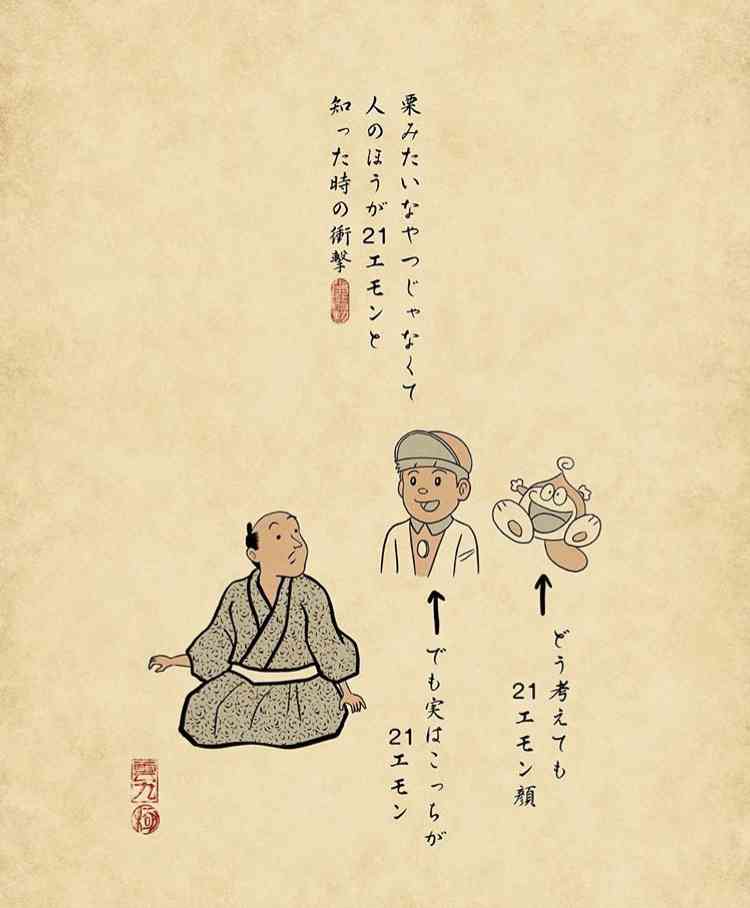 栗みたいなやつじゃなくて
人のほうが21エモンと
知った時の衝撃
どう考えても
21エモン顔
でも実はこっちが
21エモン